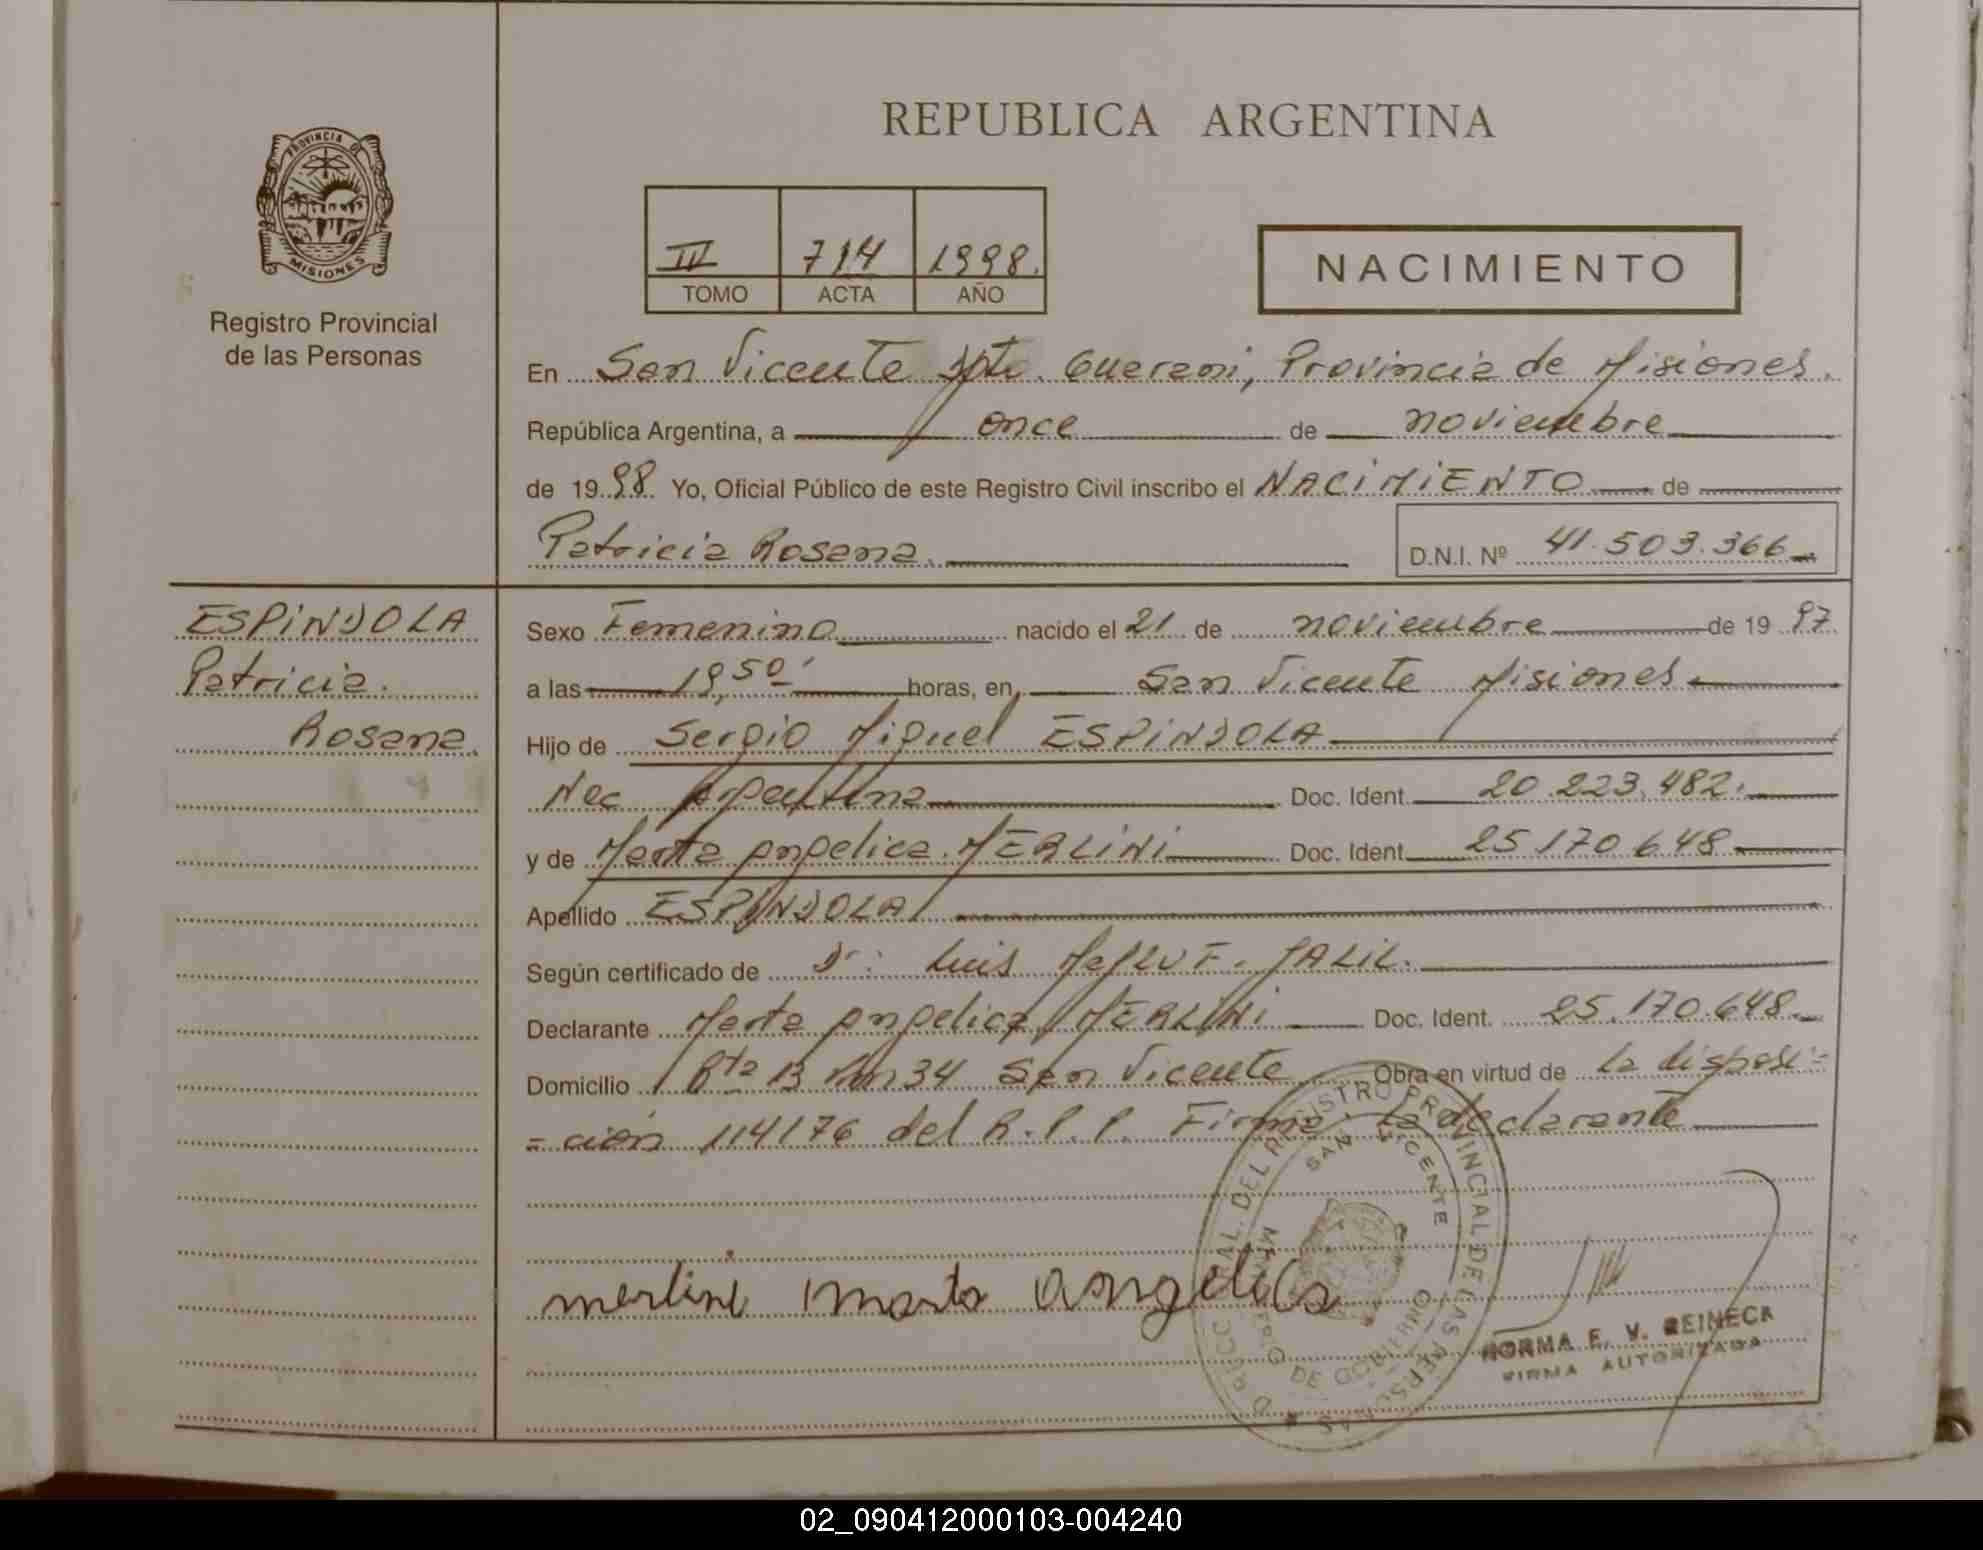 REPUBLICA ARGENTINA
PROVINCIA DE
MISIONES
Registro Provincial
de las Personas
714 1998.
TOMO ACTA AÑO
NACIMIENTO
En San Vicente Dpto. Guarani, Provincia de Misiones.
República Argentina, a once de noviembre
de 1998. Yo, Oficial Público de este Registro Civil inscribo el NACIMIENTO de
Patricia Rosana. D.N.I. Nº 41.503.366
ESPINDOLA
Patricia.
Rosana.
Sexo Femenino nacido el 21 de noviembre de 1997
a las 19,50' horas, en San Vicente Misiones
Hijo de Sergio Miguel ESPINDOLA
Nac Argentina Doc. Ident. 20.223.482.
y de Marta Angelica MERLINI Doc. Ident. 25.170.648
Apellido ESPINDOLA
Según certificado de Dr. Luis JALIL.
Declarante Marta Angelica MERLINI Doc. Ident. 25.170.648.
Domicilio Rta 13 Km 34 San Vicente Obra en virtud de la disposi=
=cion 114/76 del R.P.P. Firma la declarante
merlini marta angelica
REGISTRO PROVINCIAL DE LAS PERSONAS
SAN VICENTE
DE GOBIERNO
NORMA E. V. REINECK
FIRMA AUTORIZADA
02_090412000103-004240